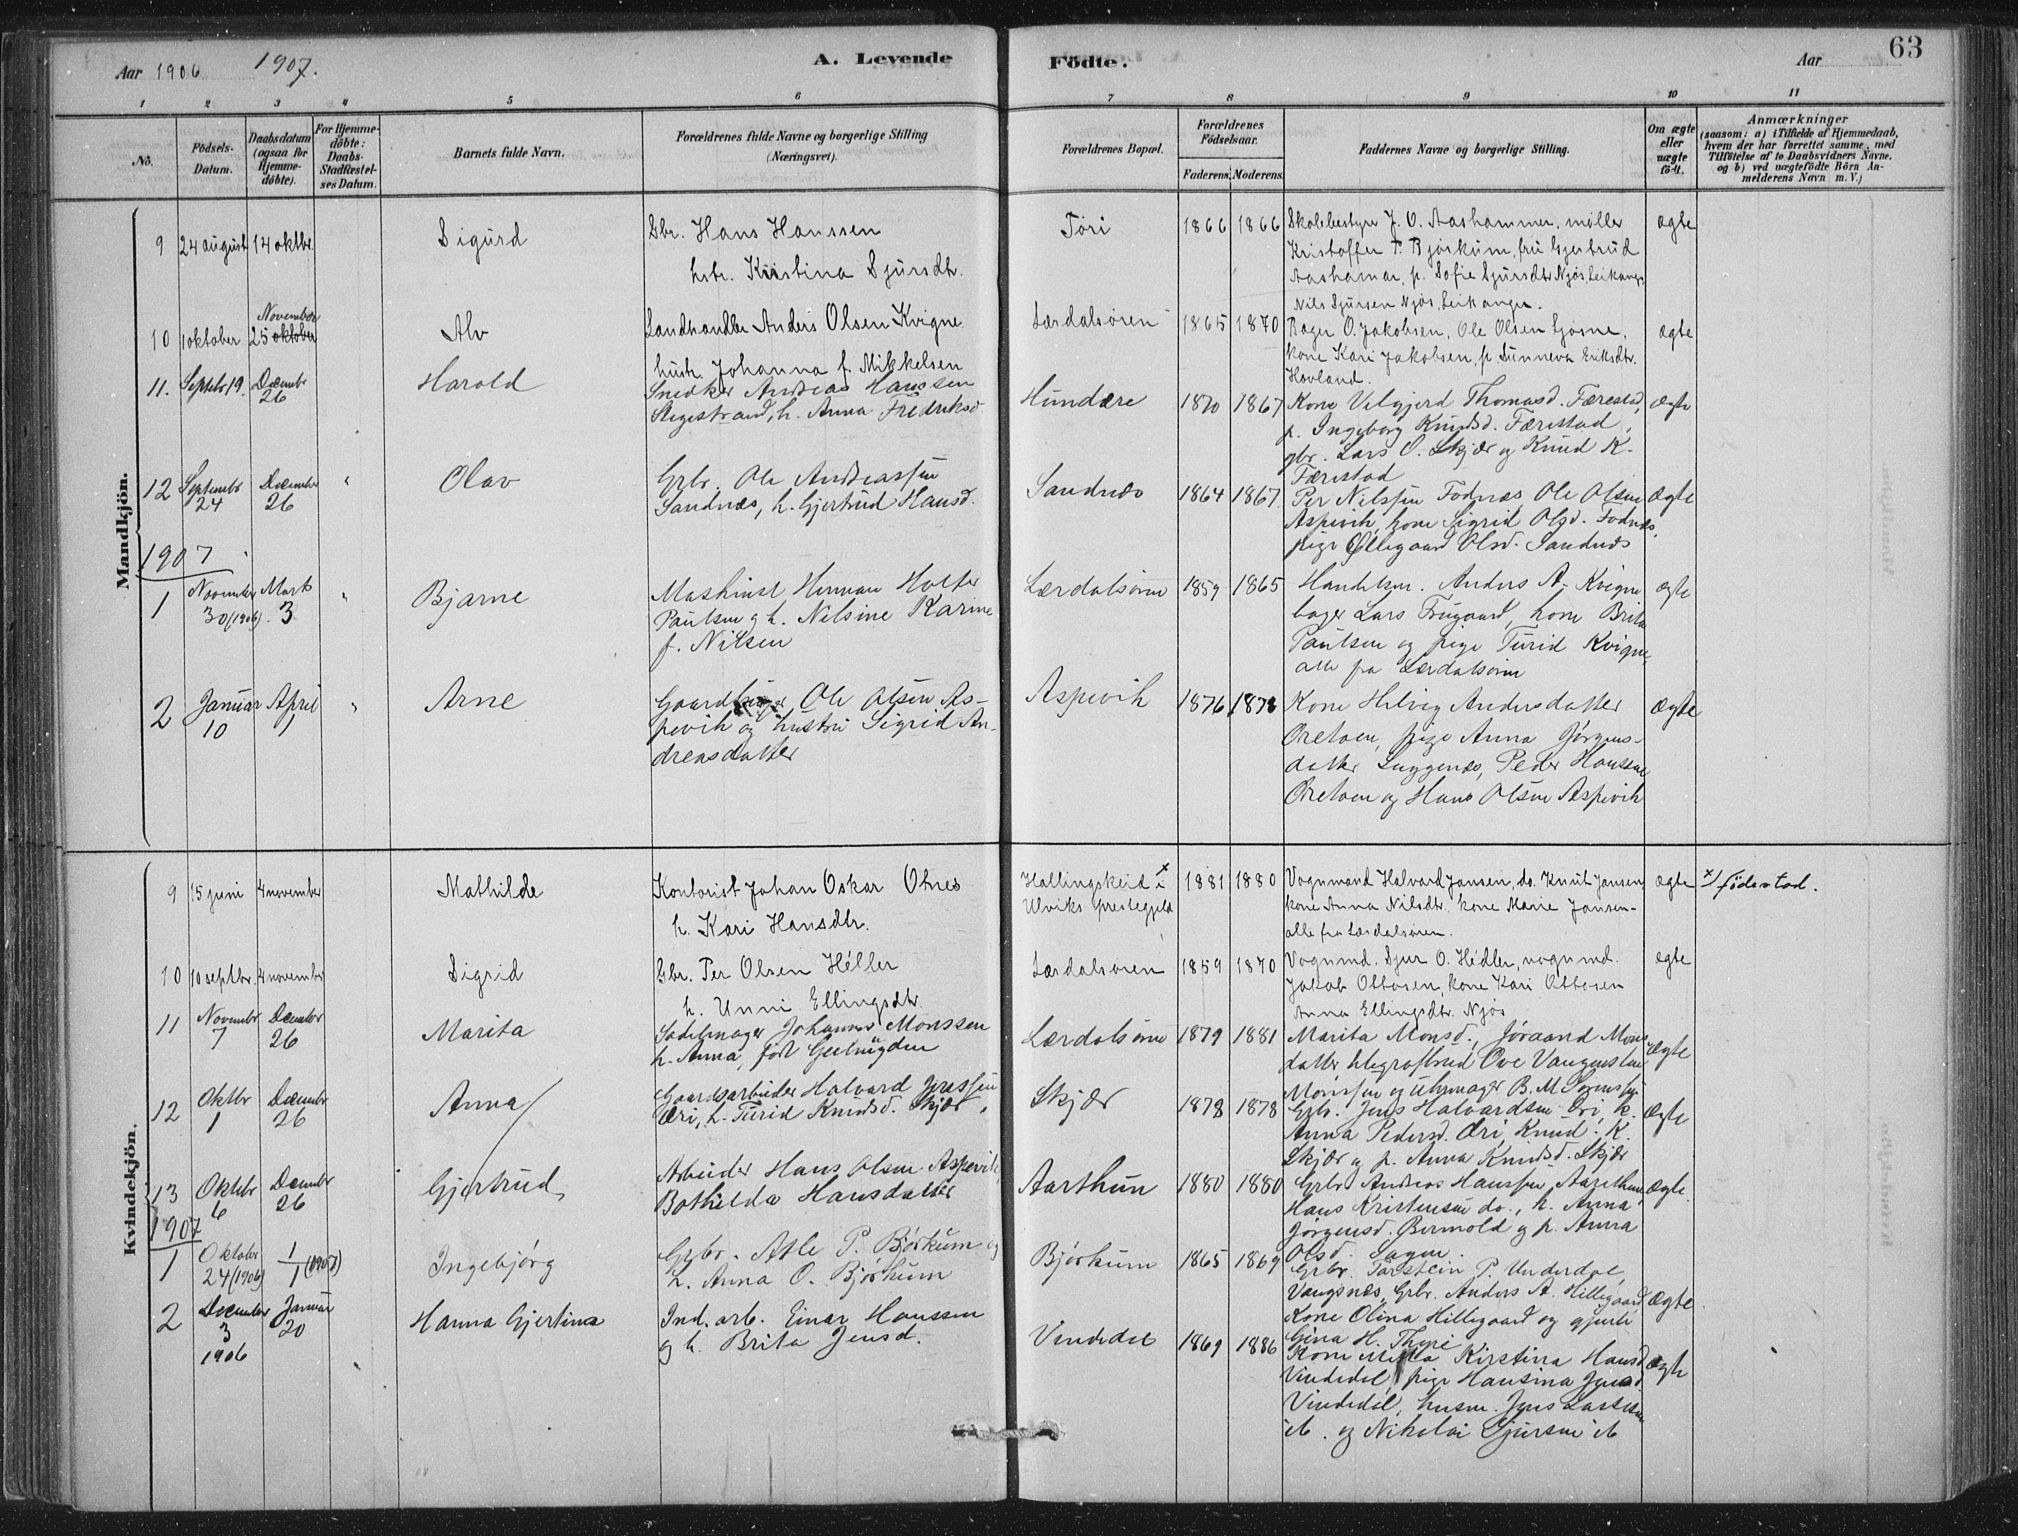 63
Aar 1906 1907.
A. Levende
Födte.
Aar
1 2 3 4 5 6 7 8 9 10 11
No.
Födsels-
Datum.
Daabsdatum
(ogsaa for
Hjemme-
döbte).
For Hjemme-
döbte:
Daabs-
Stadfæstel-
ses Datum.
Barnets fulde Navn.
Forældrenes fulde Navne og borgerlige Stilling
(Næringsvei).
Forældrenes Bopæl.
Forældrenes
Födselsaar.
Faderens. Moderens.
Faddernes Navne og borgerlige Stilling.
Om ægte
eller
uægte
fö lt.
Anmærkninger
(saasom: a) i Tilfælde af Hjemmedaab,
hvem der har forrettet samme, med
Tilföielse af to Daabsvidners Navne,
og b) ved uægtefödte Börn An-
melderens Navn m. V.)
Mandkjön.
9 24 august 14 oktbr. Sigurd
Gbr. Hans Hanssen
hstr. Kristina Sjursdtr.
Töri 1866 1866
Skolebestyrer J. O. Aashammer, møller
Kristoffer P. Bjørkum, fru Gjertrud
Aashamar, p. Sofie Sjursdtr Njøs Leikanger
Nils Sjursen Njøs, Leikanger.
ægte
10 1 oktober 25 oktober November Alv
Landhandler Anders Olsen Kvigne
hustr. Johanna f. Mikkelsen
Lærdalsören 1865 1870
Bager O. Jakobsen, Ole Olsen Ljøsne,
kone Kari Jakobsen, p. Sunneva Eriksdtr.
Hovland.
ægte
11. Septebr 19. Decembr 26 Harald
Snedker Andreas Hanssen
Stegestrand, h. Anna Fredriksd.
Hundere 1870 1867
Kone Valgjerd Thomasd. Færestad,
p. Ingeborg Knudsd. Færistad,
gbr. Lars O. Skjær og Knud K.
Færestad
Ægte
12 Septembr 24 December 26 " Olav
Grbr. Ole Andreassen
Sandnæs, h. Gjertrud Hansd.
Sandnæs 1864 1867
Per Nilssen Fodnæs Ole Olsen
Aspevik, kone Sigrid Olsd. Fodnæs,
pige Øllegaard Olsd. Sandnæs
Ægte
1907
1 November 30 (1906). Marts 3. " Bjarne
Maskinist Herman Holter
Paulsen og h. Nilsine Karine
f. Nilsen
Lærdalsören 1859 1865
Handelsm. Anders A. Kvigne
bager Lars Frugaard, kone Brita
Paulsen og pige Turid Kvigne
alle fra Lærdalsören
ægte
2 Januar 10 April 1 " Arne
Gaardbruger Ole Olsen As-
pevik og hustru Sigrid An-
dreasdatter
Aspevik 1876 1878
Kone Helvig Andersdatter
Øretoen, pige Anna Jørgens-
datter Luggenæs, Peder Hanssen
Øretoen og Hans Olsen Aspevik
Ægte
Kvindekjön.
9 15 juni 4 november Mathilde
Kontorist Johan Oskar Olnes
h. Kari Hansdtr.
Hallingskeid x i
Ulviks prestegjeld
1881 1880
Vognmand Halvard Jansen, do. Knut Jansen,
kone Anna Nilsdtr. kone Marie Jansen-
alle fra Lærdalsören.
ægte x/ födestad.
10 10 septbr. 4 november Sigrid
Gbr. Per Olsen Héller
h. Unni Ellingsdtr.
Lærdalsören 1859 1870
Vognmd. Sjur O. Hédler, vognmd.
Jakob Ottosen, kone Kari Ottosen
Anna Ellingsdtr. Njøs
ægte
11 Novembr 7 December 26 Marita
Sadelmager Johannes Monssen
h. Anna, født Geelmuyden
Lærdalsören 1879 1881
Marita Monsd., Jøraand Mons-
datter, telegrafbud Ove Vangensten
Monssen og uhrmager B. M. Sørenssen
Ægte
12 Oktbr 1 Decembr 26 Anna
Gaardsarbeider Halvard Jenssen
Øri, h. Turid Knudsd. Skjær,
Skjær 1878 1878
Grbr. Jens Halvardsen Øri, k.
Anna Pedersd. Øri, Knud K.
Skjær og p. Anna Knudsd. Skjær
Ægte
13 Oktbr 6 Decembr 26 Gjertrud
Arbeider Hans Olsen Aspevik,
Bothilda Hansdatter
Aarethun 1880 1880
Grbr Andreas Hanssen Aarethun,
Hans Kristensen do., k. Anna
Jørgensd. Bermold og p. Anna
Olsd. Sagen.
Ægte.
1907
1 Oktober 24 (1906) 1/1 (1907) Ingebjörg
Grbr. Atle P. Bjørkum og
h. Anna O. Bjørkum
Bjørkum 1865 1869
Grbr. Torstein P. Underdal,
Vangsnæs, Grbr. Anders A. Hillegaard
Kone Olina Hillegaard og gjente
Gina H. Theri
Ægte
2 December 3 1906 Januar 20 Hanna Gjertina
Ind. arb. Einar Hanssen
og h. Brita Jensd.
Vindedal 1869 1886
Kone Metta Kirstina Hansd
Vindedal, pige Hansina Jensd.
Vindedal, husm. Jens Lassesen
ib. og Nikolai Sjursen ib
Ægte